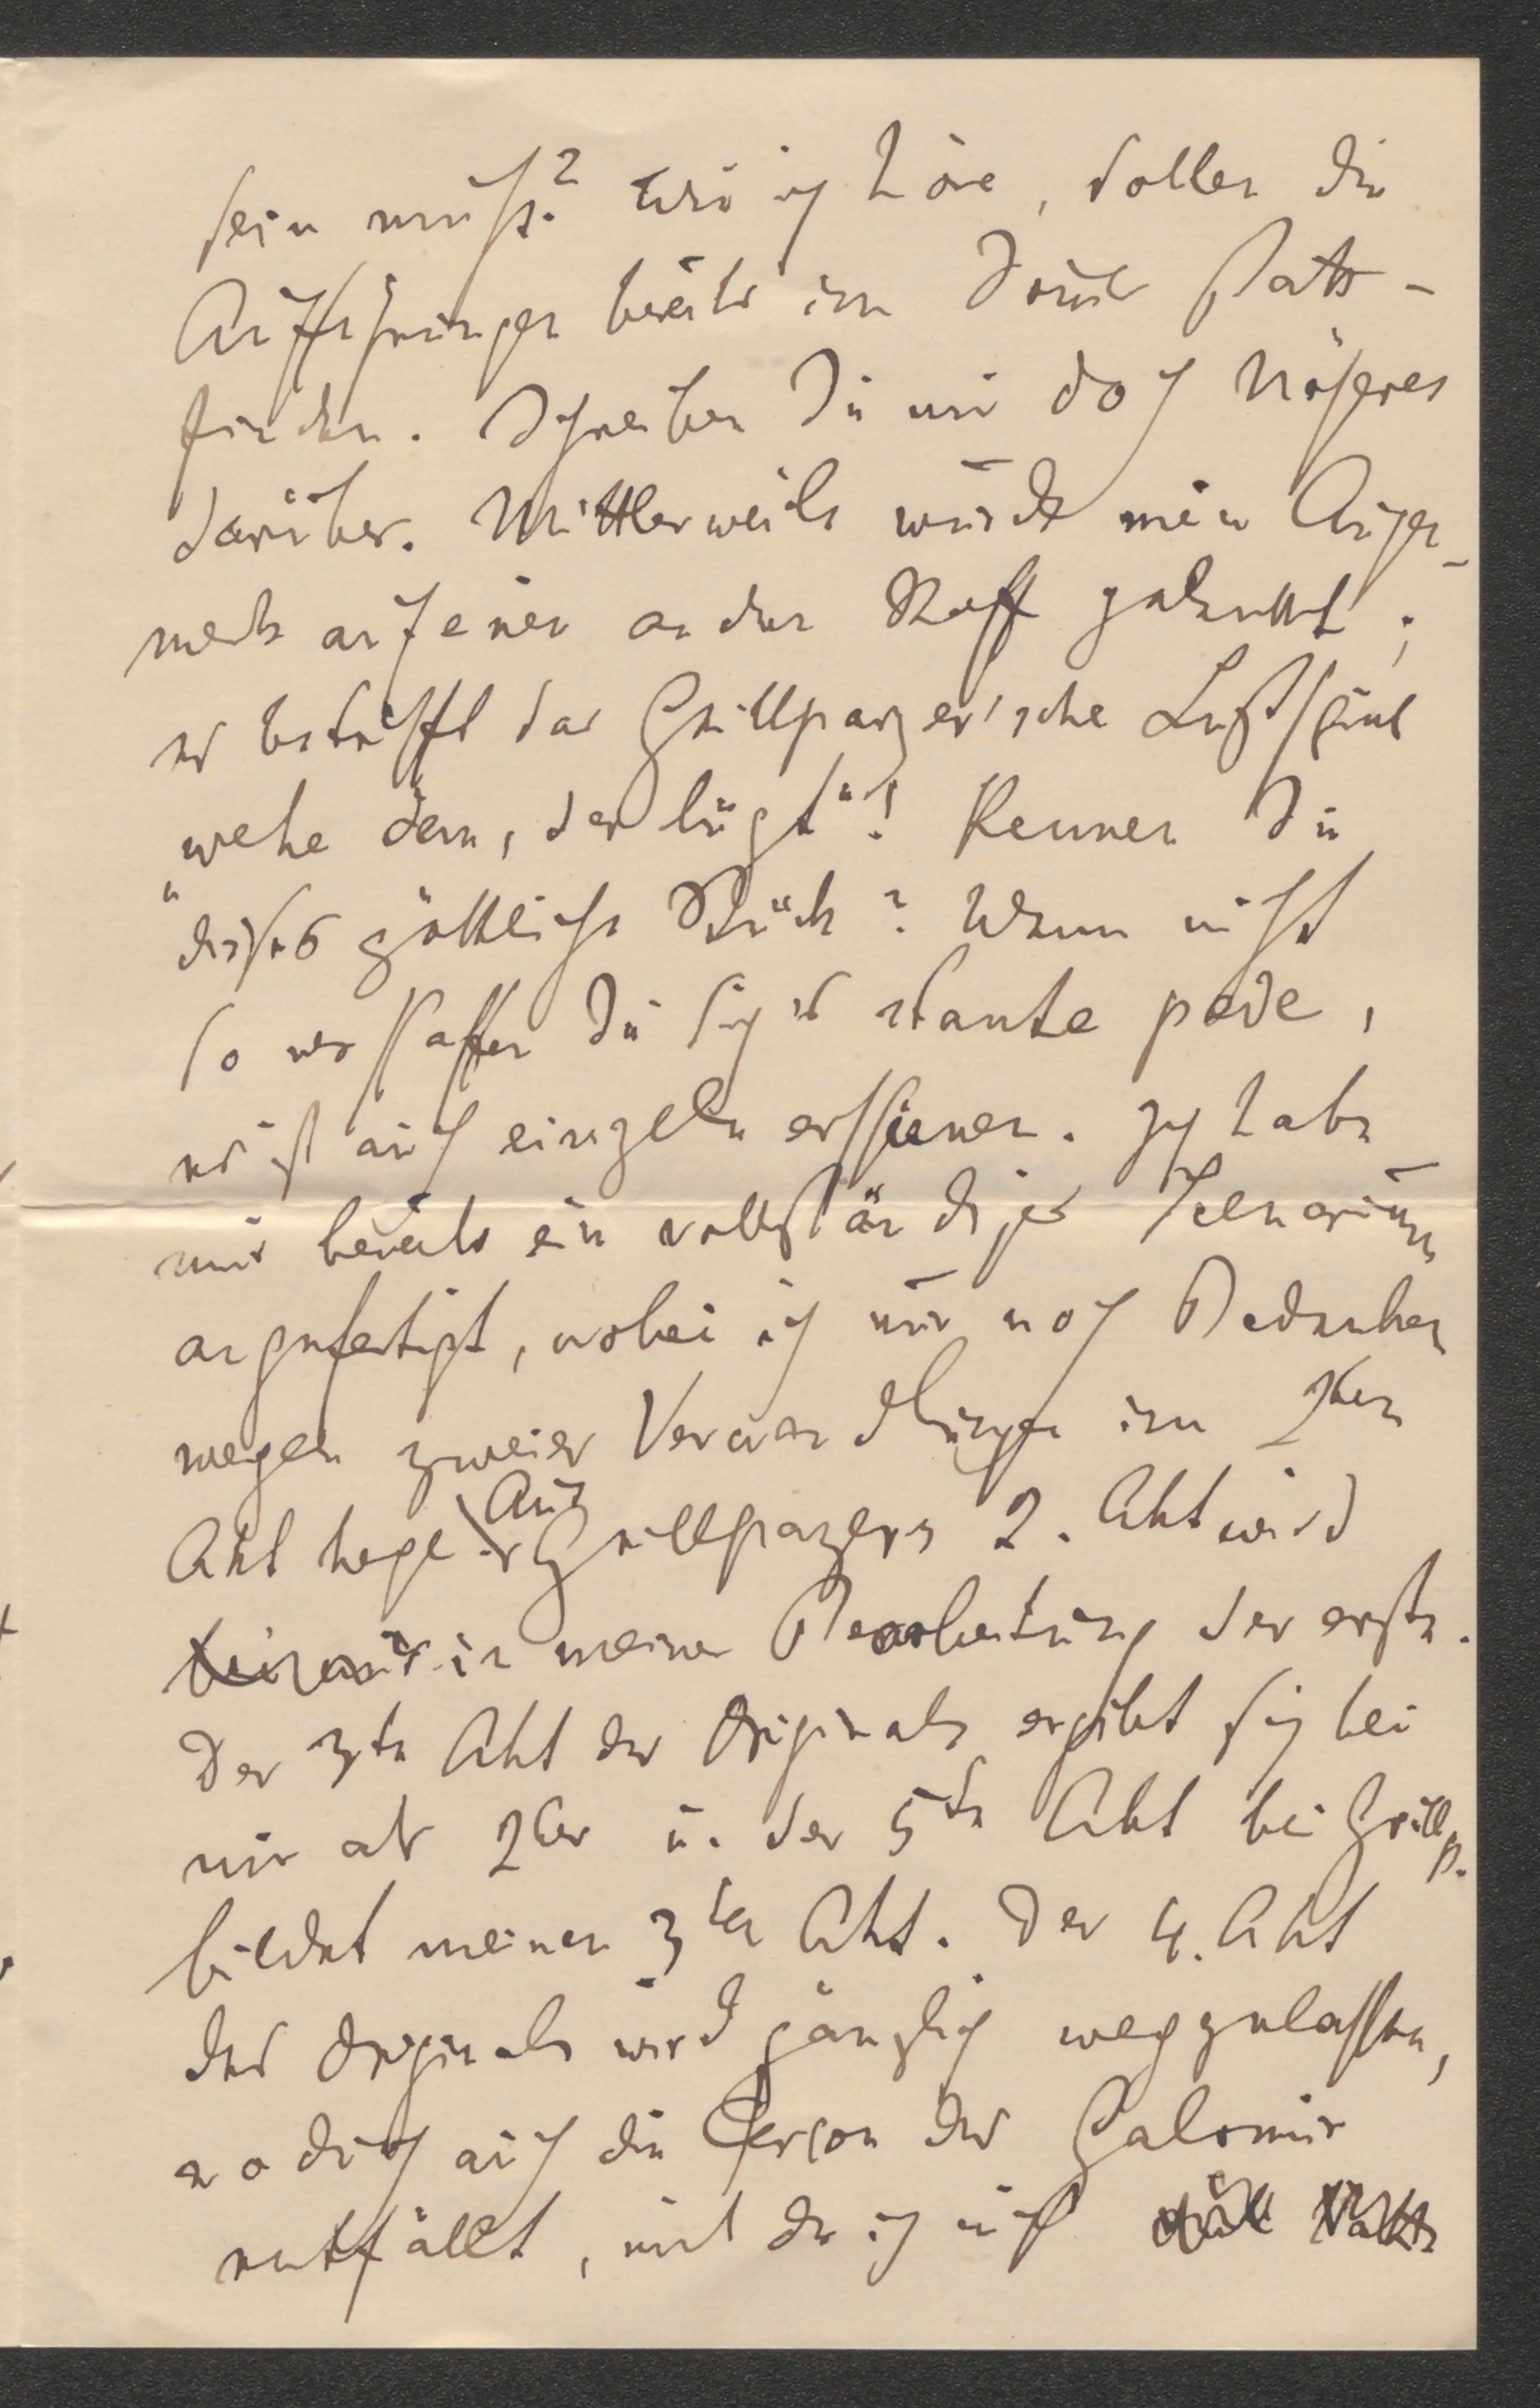 sein muß? Wie ich höre, sollen die
Aufführungen bereits im Druck statt-
finden. Schreiben Sie mir doch Näheres
darüber. Mittlerweile wurde mein Augen-
merk auf einen andern Stoff gelenkt;
es betrifft das Grillparzer'sche Lustspiel
„wehe dem, der lügt“! Kennen Sie
dieses göttliche Stück? Wenn nicht
so verschaffen Sie sich's stante pede,
es ist auch einzeln erschienen. Ich habe
mir bereits ein vollständiges Scenarium
angefertigt, wobei ich nur noch Bedenken
wegen zweier Verwandlungen im 2ten
Akt hege. Aus Grillparzers 2. Akt wird
in meiner Bearbeitung der erste.
Der 3te Akt des Originals ergibt sich bei
mir als 2ter u. der 5te Akt bei Grillp.
bildet meinen 3ten Akt. Der 4. Akt
des Originals wird gänzlich wegzulassen,
wodurch auch die Person des Galomir
entfällt, mit der ich nicht